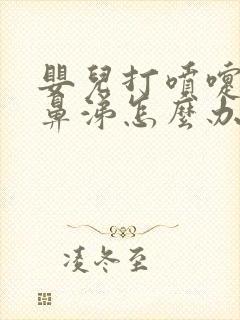 嬰兒打噴嚏
鼻涕怎麼办
凌冬至